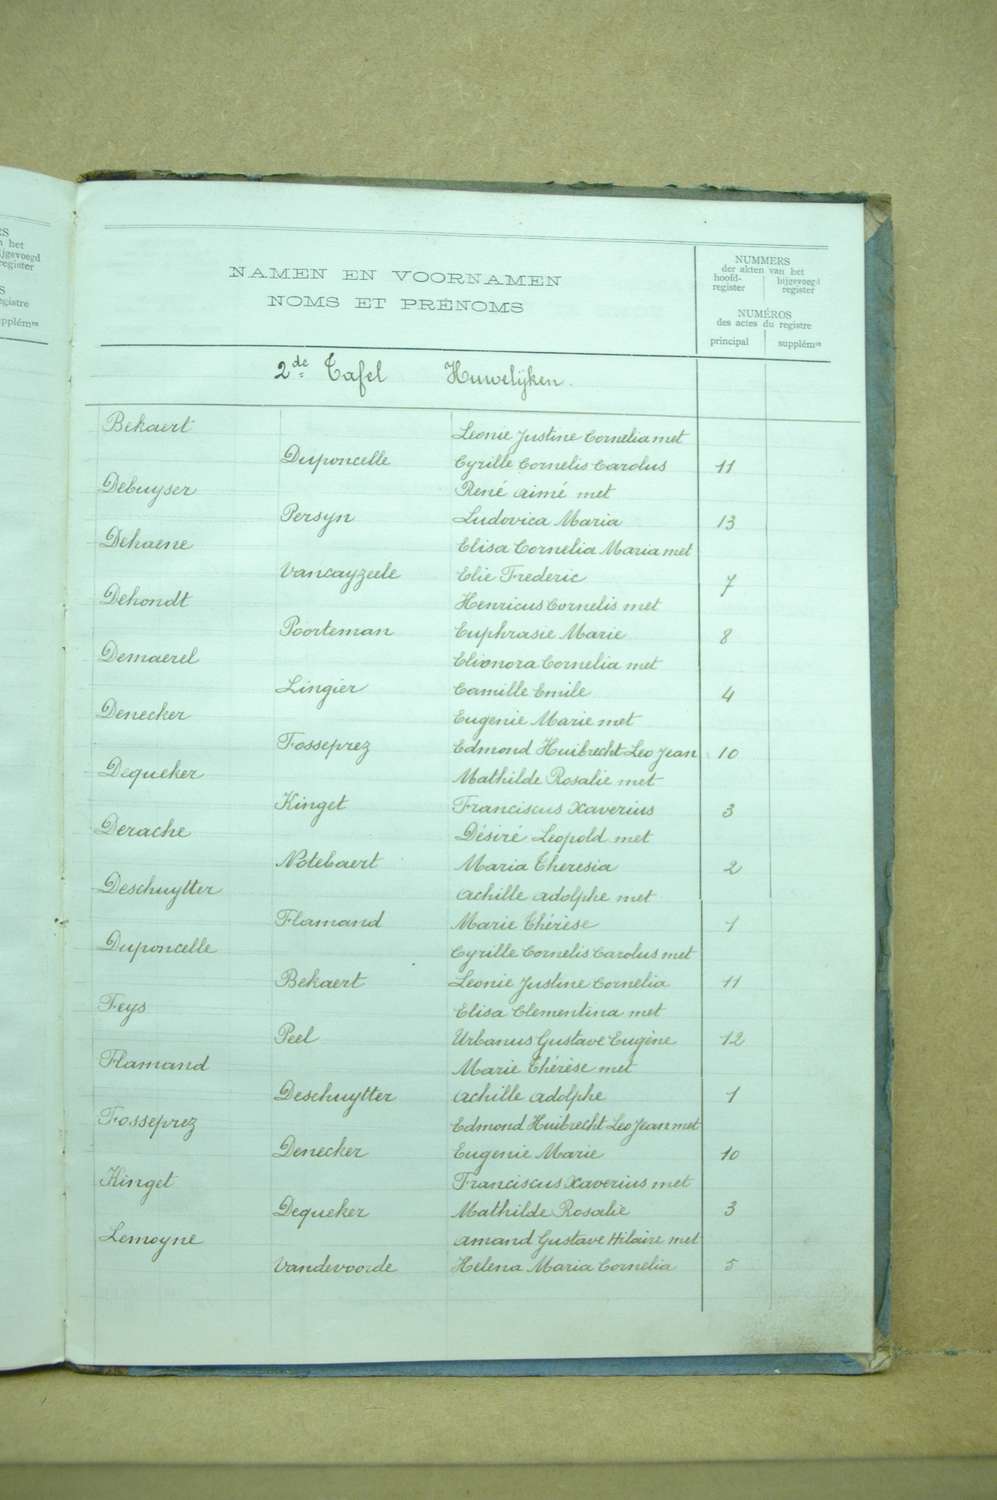 RS
n het
ijgevoegd
register
S
egistre
upplémre
NAMEN EN VOORNAMEN
NOMS ET PRÉNOMS
NUMMERS
der akten van het
hoofd-register
bijgevoegd register
NUMÉROS
des actes du registre
principal supplémre
2de Tafel Huwelijken.
Bekaert Leonie Justine Cornelia met
Duponcelle Cyrille Cornelis Carolus 11
Debuyser René Aimé met
Persyn Ludovica Maria 13
Dehaene Elisa Cornelia Maria met
Vancayzeele Elie Frederic 7
Dehondt Henricus Cornelis met
Poorteman Euphrasie Marie 8
Demaerel Elionora Cornelia met
Lingier Camille Emile 4
Denecker Eugenie Marie met
Fosseprez Edmond Huibrecht Leo Jean 10
Dequeker Mathilde Rosalie met
Kinget Franciscus Xaverius 3
Derache Désiré Leopold met
Notebaert Maria Theresia 2
Deschuytter Achille Adolphe met
Flamand Marie Thérèse 1
Duponcelle Cyrille Cornelis Carolus met
Bekaert Leonie Justine Cornelia 11
Feys Elisa Clementina met
Peel Urbanus Gustave Eugène 12
Flamand Marie Thérèse met
Deschuytter Achille Adolphe 1
Fosseprez Edmond Huibrecht Leo Jean met
Denecker Eugenie Marie 10
Kinget Franciscus Xaverius met
Dequeker Mathilde Rosalie 3
Lemoyne Amand Gustave Hilaire met
Vandevoorde Helena Maria Cornelia 5